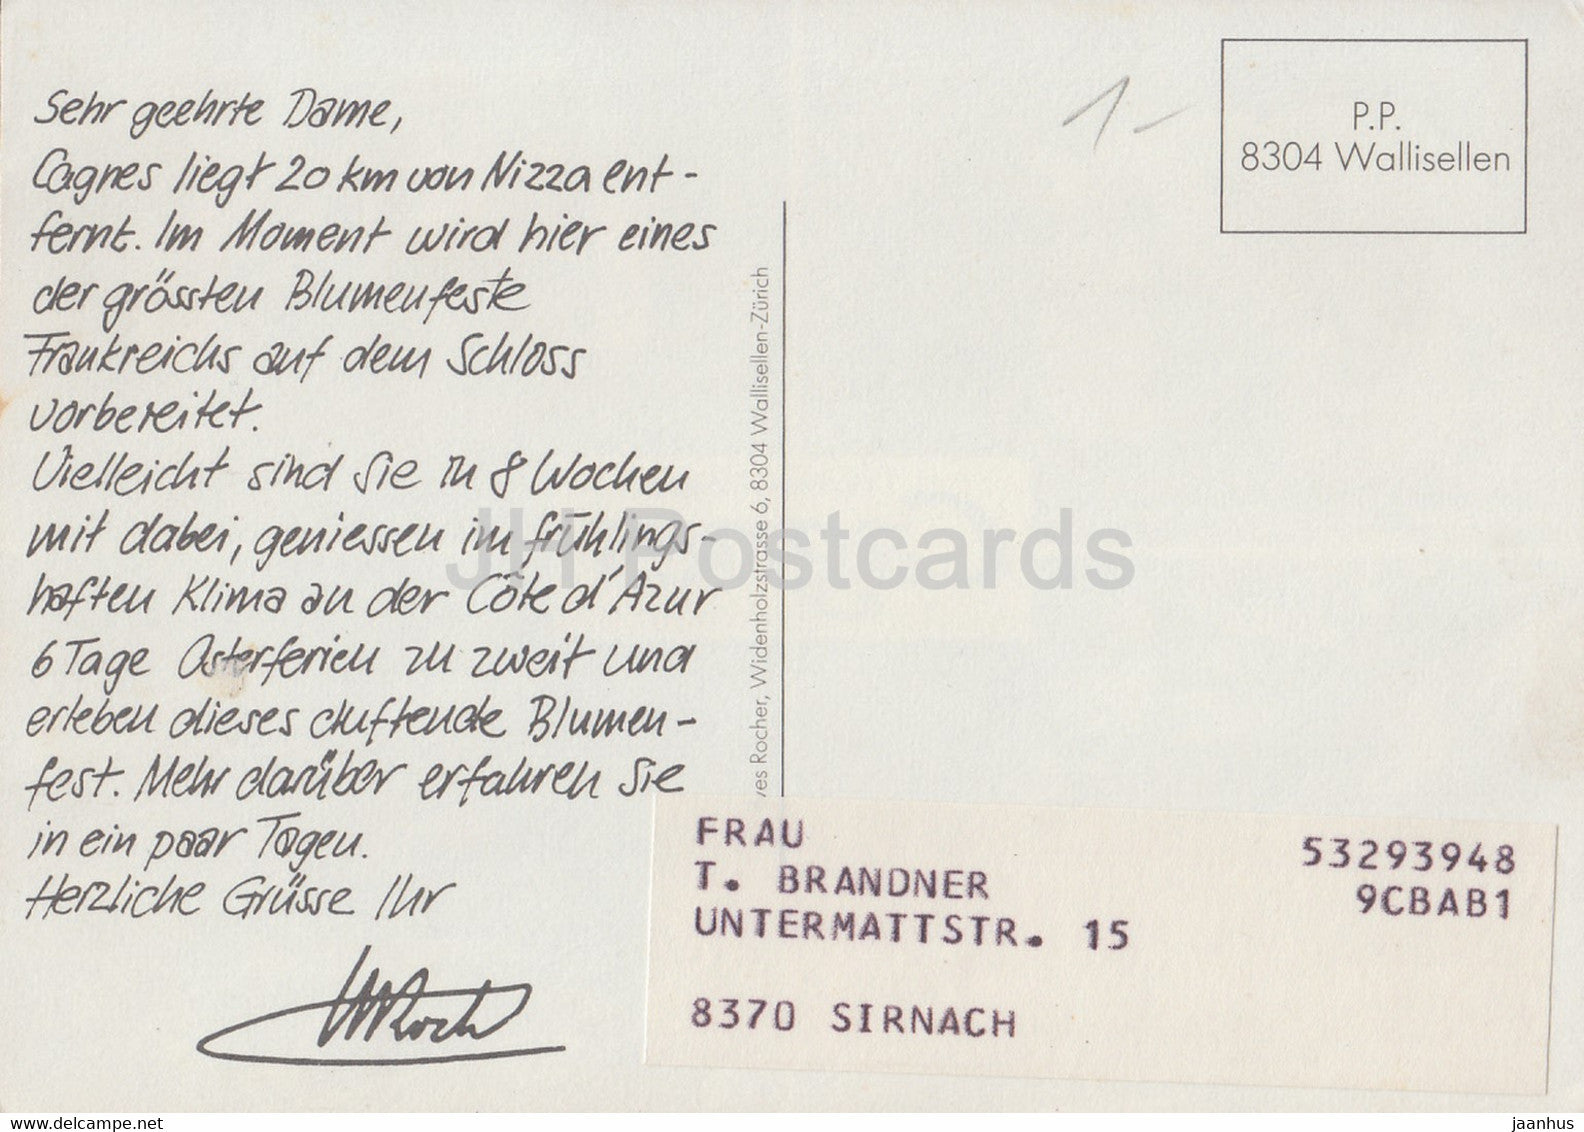 Sehr geehrte Dame,
Cagnes liegt 20 km von Nizza ent-
fernt. Im Moment wird hier eines
der grössten Blumenfeste
Frankreichs auf dem Schloss
vorbereitet.
Vielleicht sind Sie in 8 Wochen
mit dabei, geniessen im frühlings-
haften Klima an der Côte d'Azur
6 Tage Osterferien zu zweit und
erleben dieses duftende Blumen-
fest. Mehr darüber erfahren Sie
in ein paar Tagen.
Herzliche Grüsse Ihr
1-
P.P.
8304 Wallisellen
ves Rocher, Widenholzstrasse 6, 8304 Wallisellen-Zürich
JH Postcards
FRAU
T. BRANDNER
UNTERMATTSTR. 15
8370 SIRNACH
53293948
9CBAB1
www.delcampe.net
jaanhus